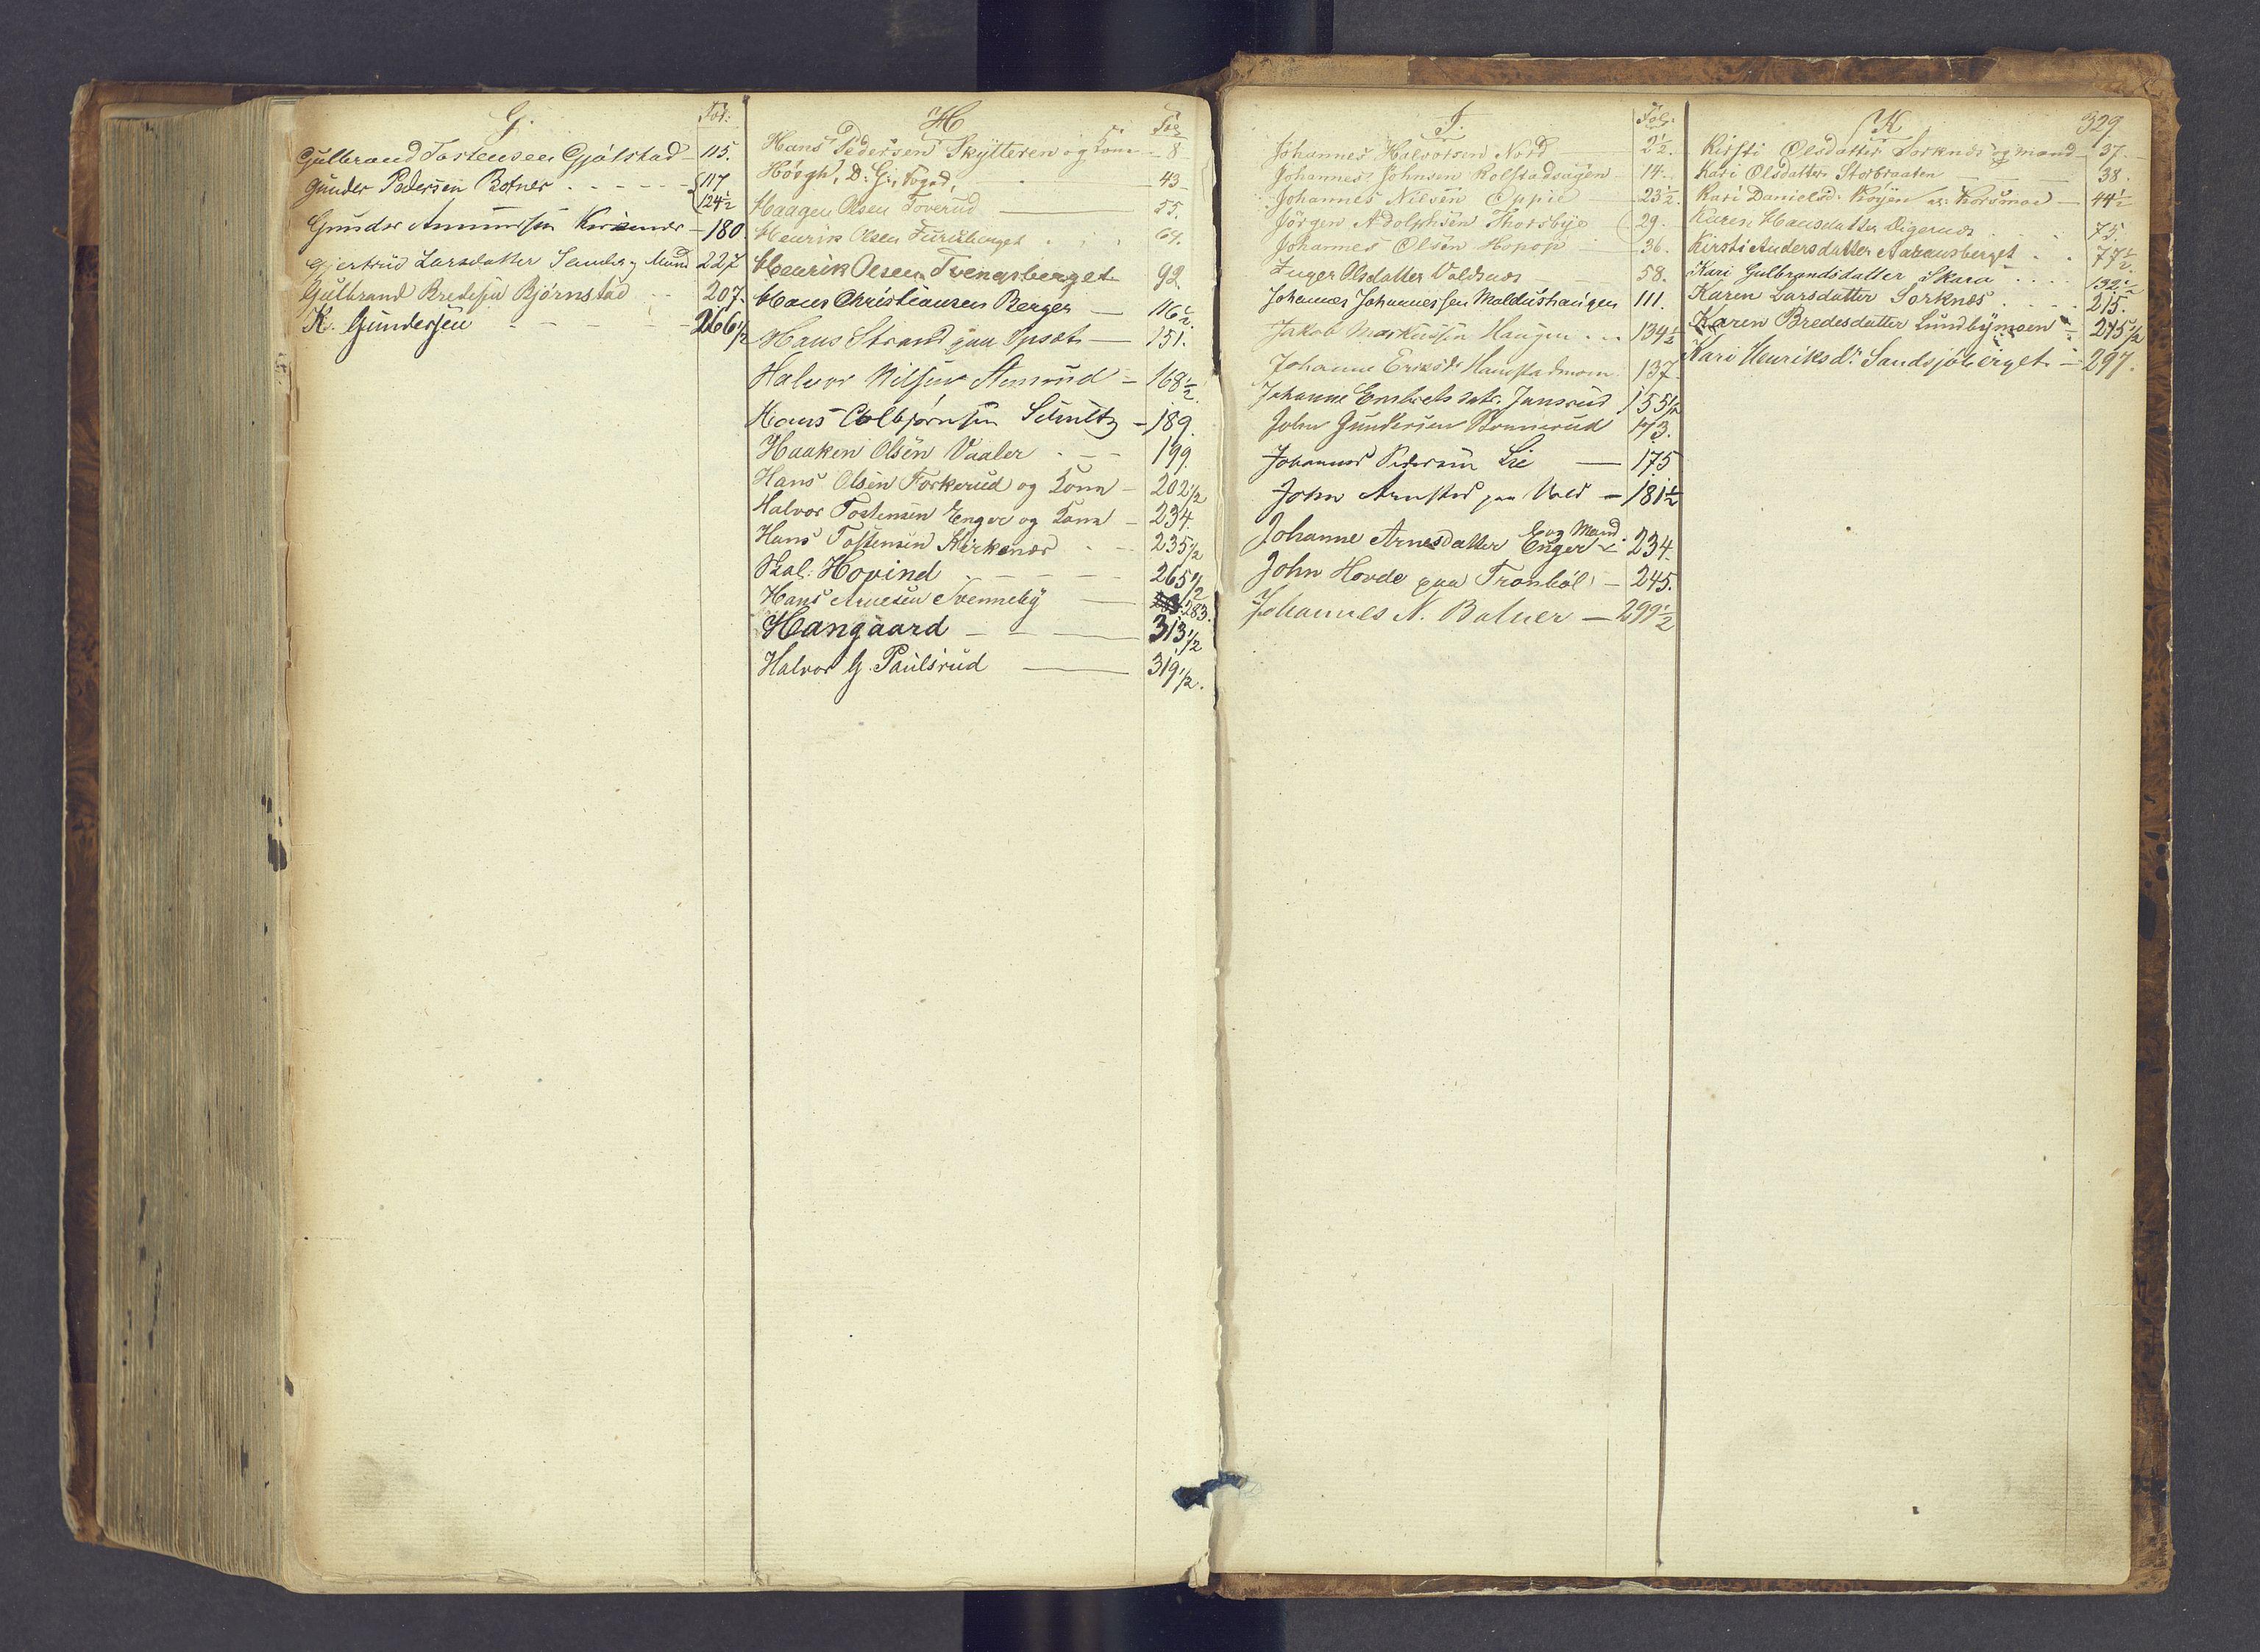 G.
Fol:
Gulbrand Tostensen Gjølstad - 115.
Gunder Pedersen Botner - 117
124½
Gunder Amundsen Kirkenær - 180.
Gjertrud Larsdatter Sander og Mand 227
Gulbrand Bredesen Bjørnstad - 207.
K. Gundersen - 266½
H
Fol
Hans Pedersen Skytteren og Kone - 8
Høegh, D: G:, Foged, 43
Haagen Olsen Toverud 55.
Henrik Olsen Furuberget 64.
Henrik Olsen Tvengsberget 92
Hans Christiansen Berger - 116½.
Hans Strand paa Opset - 151.
Halvor Nilsen Aamrud - 168½
Hans Colbjørnsen Schultz - 189.
Haaken Olsen Vaaler - 199.
Hans Olsen Forkerud og Kone - 202½
Halvor Tostensen Enger og Kone - 234.
Hans Tostensen Kirkenær - 235½
Hovind 265½
Hans Arnesen Svenneby 283.
Hangaard - 313½
Halvor G. Paulsrud 319½.
I.
Fol:
Johannes Halvorsen Nord 2½.
Johannes Johnsen Rolstadsagen 14.
Johannes Nilsen Oppie 23½.
Jörgen Adolphsen Thorsbye 29.
Johannes Olsen Hopop 36.
Inger Olsdatter Voldnæs 58.
Johannes Johannessen Maldushaugen 111.
Jakob Markussen Haugen 134½
Johanne Eriksdr Haugstadmoen 137.
Johanne Embretsdatr. Jansrud 155½
John Gundersen Ronnerud 173.
Johannes Pedersen Lie - 175
John Arnstad paa Vold - 181½
Johanne Arnesdatter Enger og Mand. 234.
John Hovde paa Tronbøl - 245.
Johannes N. Bolner - 299½
K
329
Kirsti Olsdatter Sorknæs og Mand 37.
Kari Olsdatter Storbraaten 38.
Kari Danielsd. Røyen Korsmoe - 44½
Karen Hansdatter Digernæs 75.
Kirsti Andersdatter Aarausberget 77½.
Kari Gulbrandsdatter Skara 132½
Karen Larsdatter Sorknæs 215.
Karen Bredesdatter Lundbymoen - 275½
Kari Henriksdr. Sandsjøberget - 297.